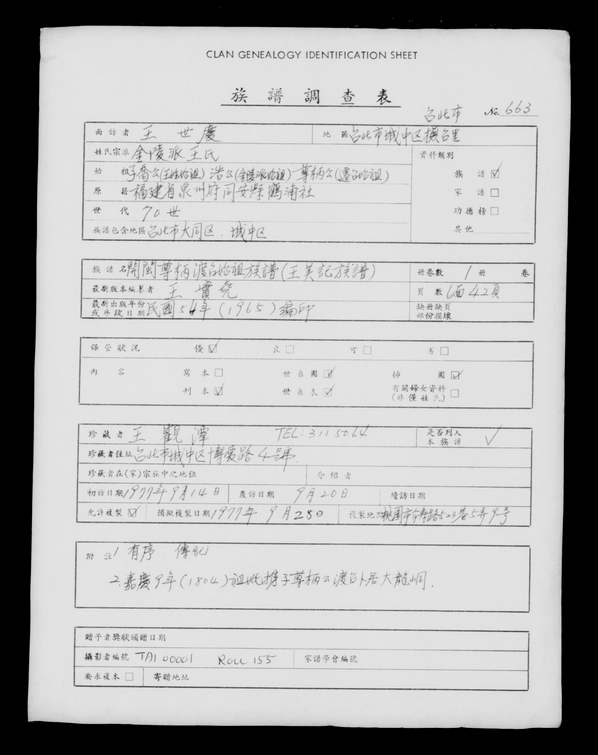 CLAN GENEALOGY IDENTIFICATION SHEET
族譜調查表
台北市 No. 663
面訪者 王世慶 地區 台北市城中区横台里
姓氏宗派 金陵派王氏 資料類別
始祖 子喬公(王姓始祖) 浩公(金陵派始祖) 尊柄公(遷台始祖) 族譜 ☑
原籍 福建省泉州府同安縣鶴浦社 家譜 □
世代 70世 功德榜 □
族譜包含地區 台北市大同区、城中区 其他
族譜名 開閩尊柄渡台始祖族譜(王美記族譜) 冊卷數 1冊 卷
最新版本編纂者 王 頁數 42頁
最新出版年份或年跋日期 民國54年(1965)編印 缺冊缺頁部份損壞
保管狀況 優 ☑ 良 □ 可 □ 劣 □
內容 寫本 □ 世系圖 ☑ 像圖 ☑
刊本 ☑ 世系表 ☑ 有關婦女資料(非僅姓氏) □
珍藏者 王觀潭 TEL: 3115064 是否列入本族譜 ✓
珍藏者住址 台北市城中区博愛路4號
珍藏者在(家)宗族中之地位 介紹者
初訪日期 1977年9月14日 覆訪日期 9月20日 續訪日期
允許複製 ☑ 攝縮複製日期 1977年9月28日
附註 1. 有序 傳記
2. 嘉慶9年(1804)祖妣携子尊柄公渡台居大龍峒.
贈予者獎狀頒贈日期
攝影者編號 TAI 00001 ROLL 155 家譜學會編號
要求複本 □ 寄贈地址